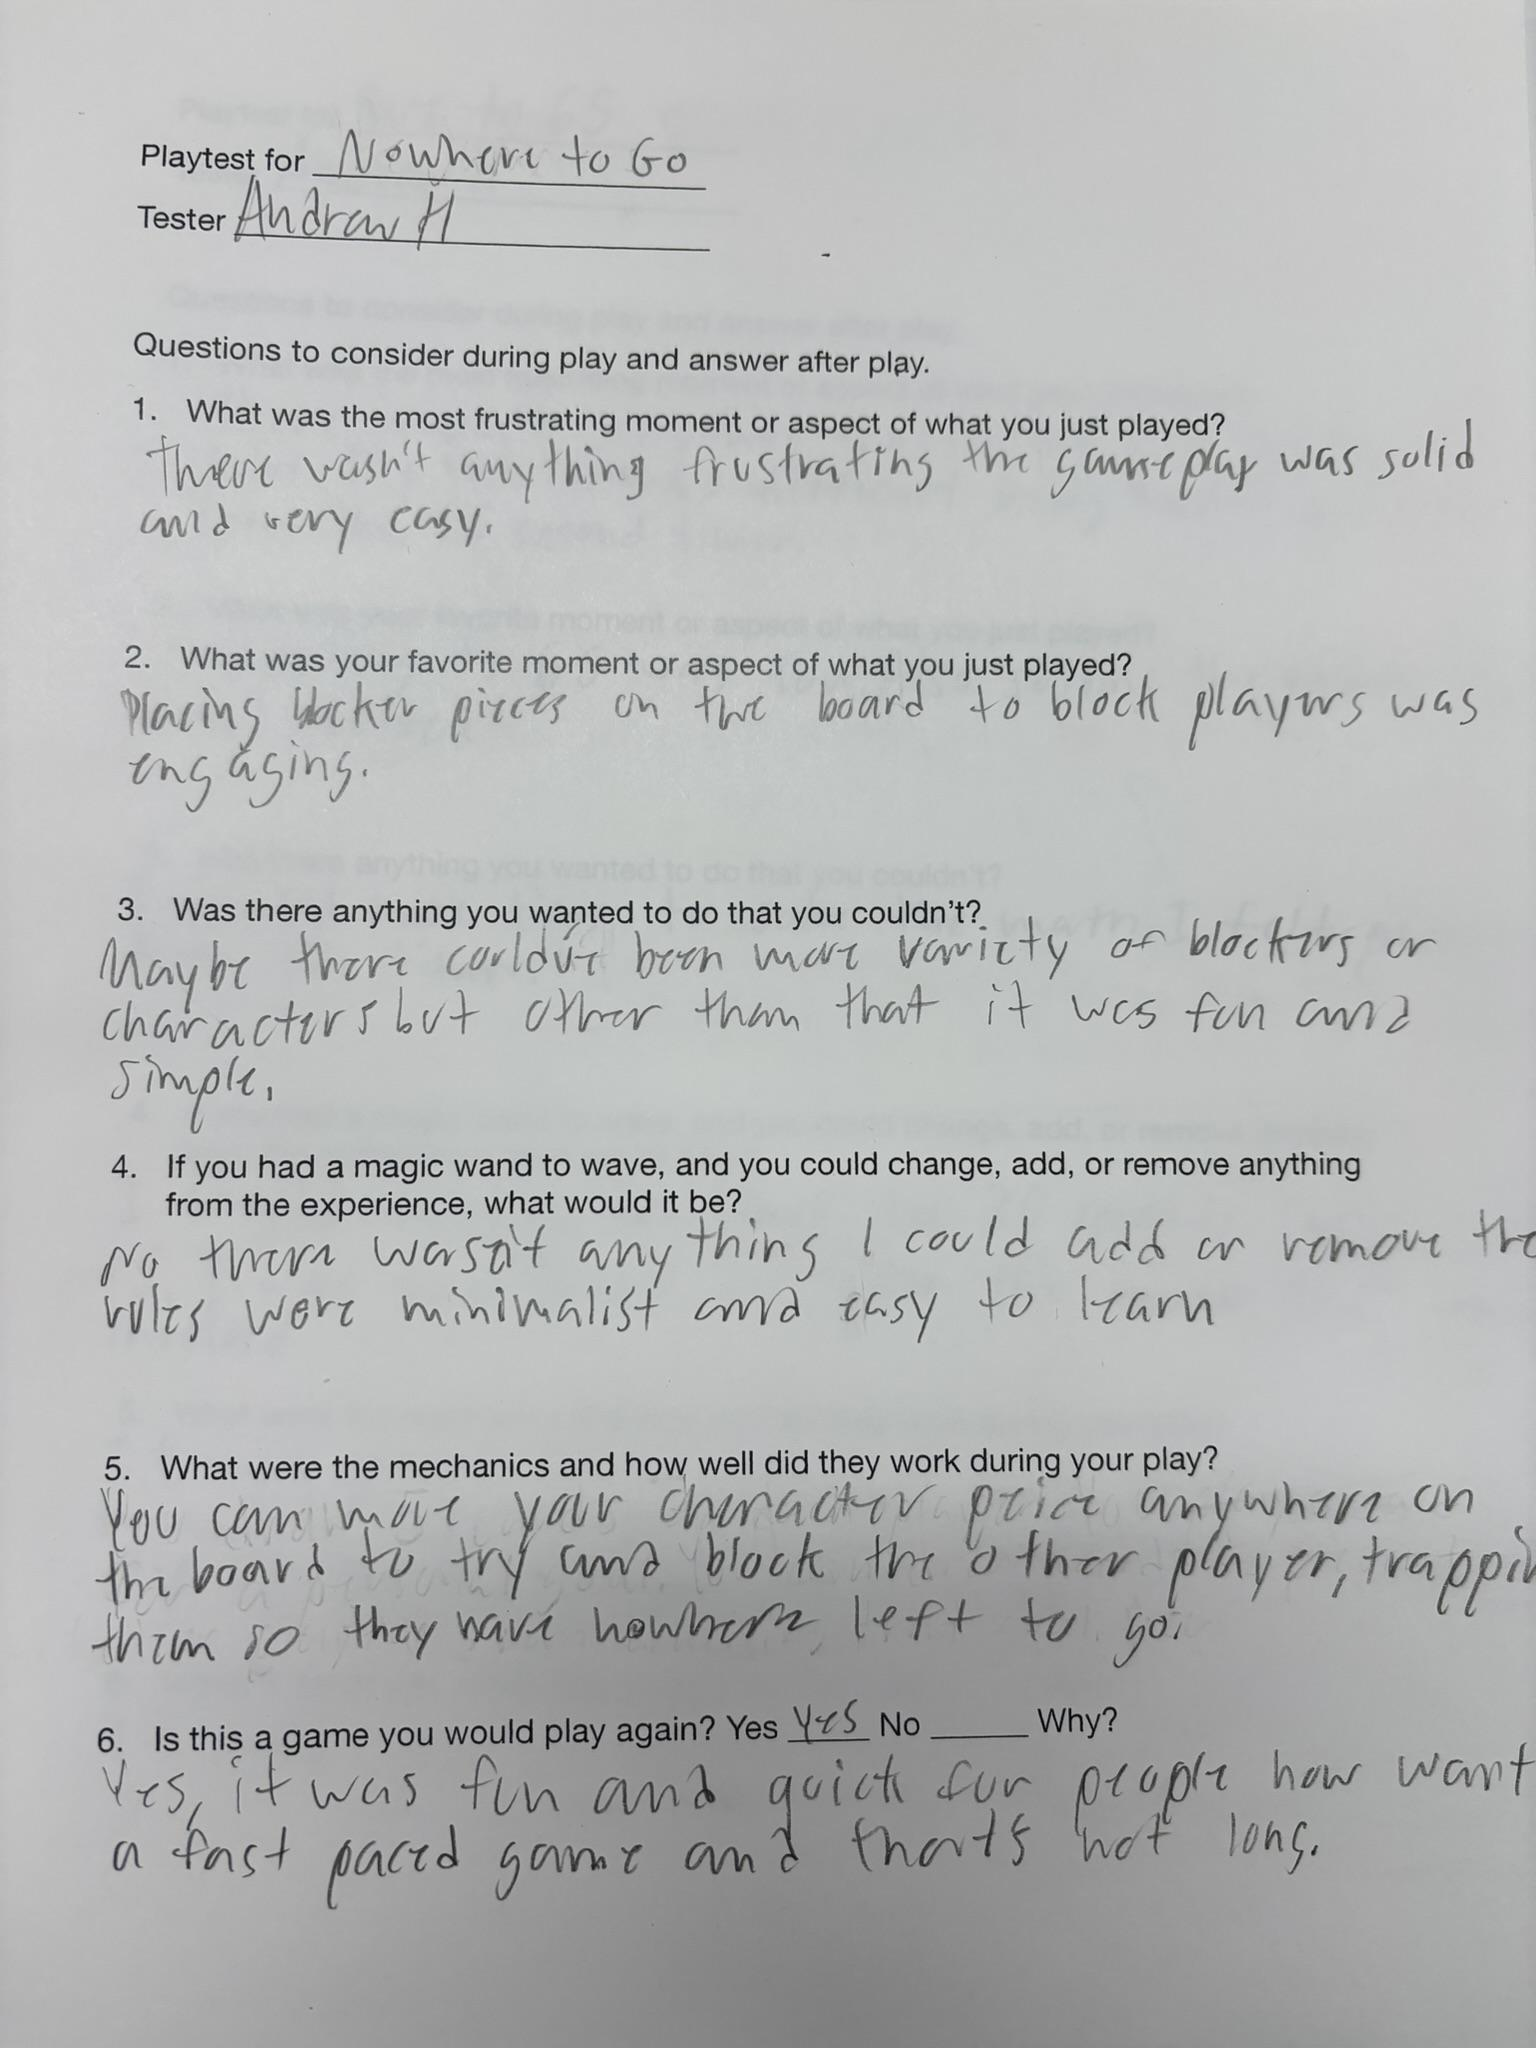 Playtest for Nowhere to Go
Tester Andrew H
Questions to consider during play and answer after play.
1. What was the most frustrating moment or aspect of what you just played?
There wasn't anything frustrating the gameplay was solid
and very easy.
2. What was your favorite moment or aspect of what you just played?
Placing blocker pieces on the board to block players was
engaging.
3. Was there anything you wanted to do that you couldn't?
Maybe there could've been more variety of blockers or
characters but other than that it was fun and
simple.
4. If you had a magic wand to wave, and you could change, add, or remove anything
from the experience, what would it be?
No there wasn't anything I could add or remove the
rules were minimalist and easy to learn
5. What were the mechanics and how well did they work during your play?
You can move your character peice anywhere on
the board to try and block the other player, trappin
them so they have nowhere left to go.
6. Is this a game you would play again? Yes Yes No ______ Why?
Yes, it was fun and quick for people how want
a fast paced game and that's not long.